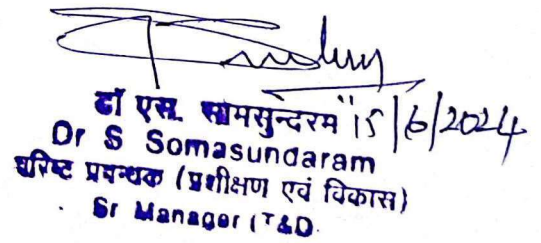 डॉ एस. सोमसुन्दरम 15/6/2024
Dr S Somasundaram
वरिष्ट प्रबन्धक (प्रशीक्षण एवं विकास)
Sr Manager (T&D